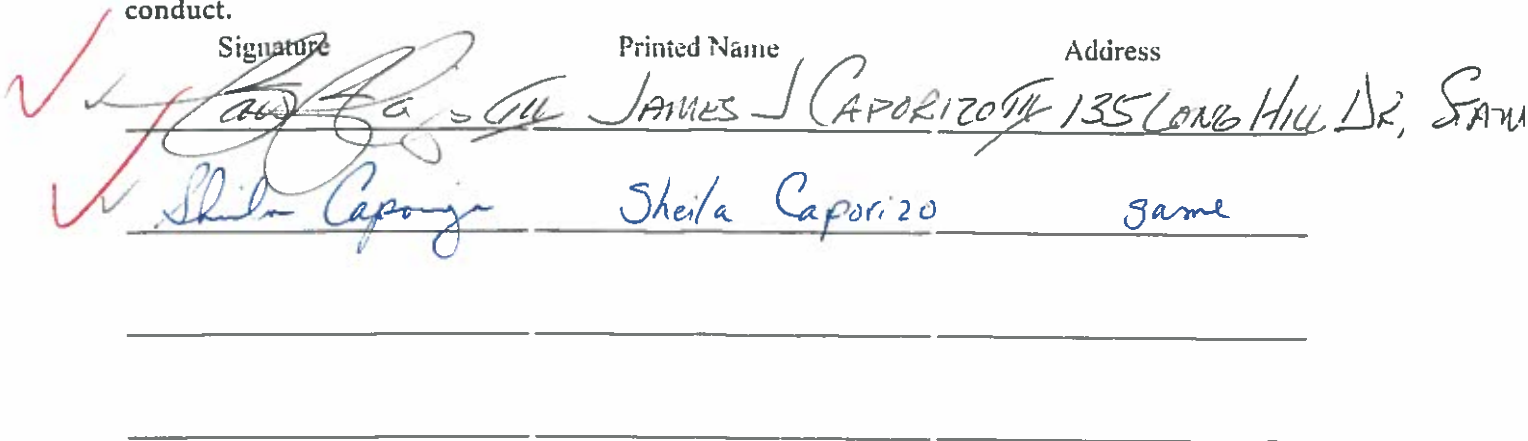 conduct.
Signature Printed Name Address
JAMES J CAPORIZO III 135 LONG HILL DR,
Sheila Caporizo Sheila Caporizo same